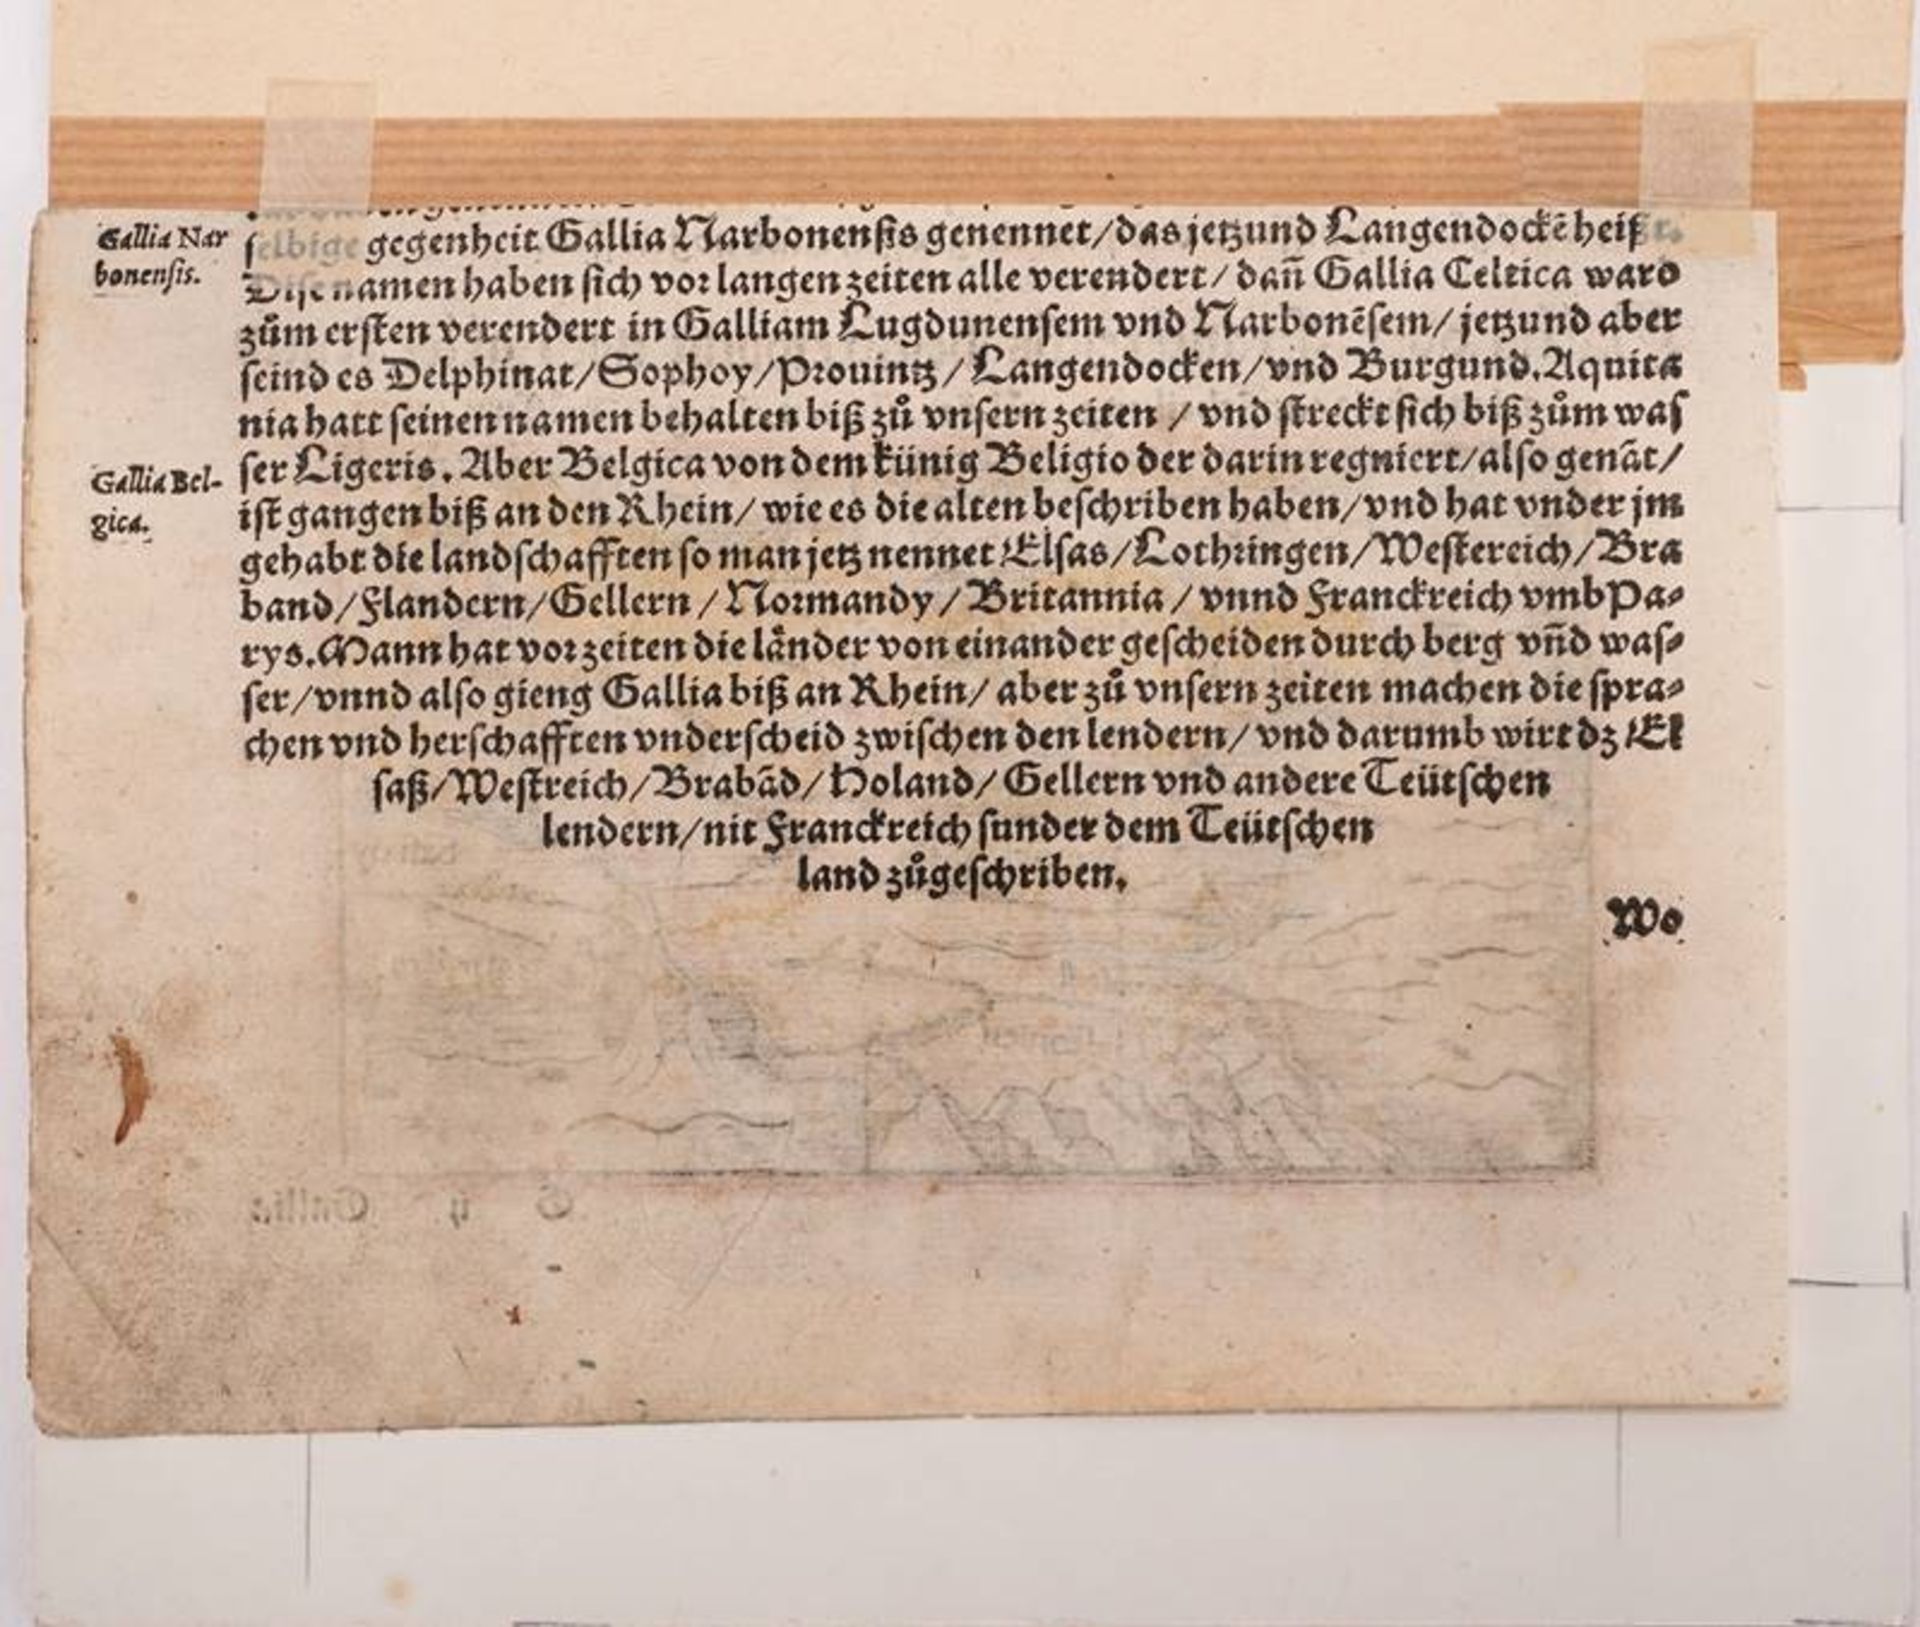 Gallia Nar
bonenſis.
ſelbige gegenheit Gallia Narbonenſis genennet/das jetzund Langendockē heiſſt.
Diſe namen haben ſich vor langen zeiten alle verendert/ dañ Gallia Celtica ward
zům erſten verendert in Galliam Lugdunenſem vnd Narbonēſem/ jetzund aber
ſeind es Delphinat/Sophoy/Prouintz/Langendocken/vnd Burgund.Aquita
nia hatt ſeinen namen behalten biß zů vnſern zeiten / vnd ſtreckt ſich biß zům waſ
Gallia Bel-
gica.
ſer Ligeris. Aber Belgica von dem künig Beligio der darin regniert/alſo genāt/
iſt gangen biß an den Rhein/ wie es die alten beſchriben haben/vnd hat vnder jm
gehabt die landſchafften ſo man jetz nennet Elſas/Lothringen/Weſtereich/Bra
band/Flandern/Gellern / Normandy / Britannia / vnnd Franckreich vmb Pa⸗
rys.Mann hat vor zeiten die länder von einander geſcheiden durch berg vñd waſ⸗
ſer/vnnd alſo gieng Gallia biß an Rhein/ aber zů vnſern zeiten machen die ſpra⸗
chen vnd herſchafften vnderſcheid zwiſchen den lendern/ vnd darumb wirt dz El
ſaß/Weſtreich/Brabād/Holand/ Gellern vnd andere Teütſchen
lendern/nit Franckreich ſunder dem Teütſchen
land zůgeſchriben.
Wo